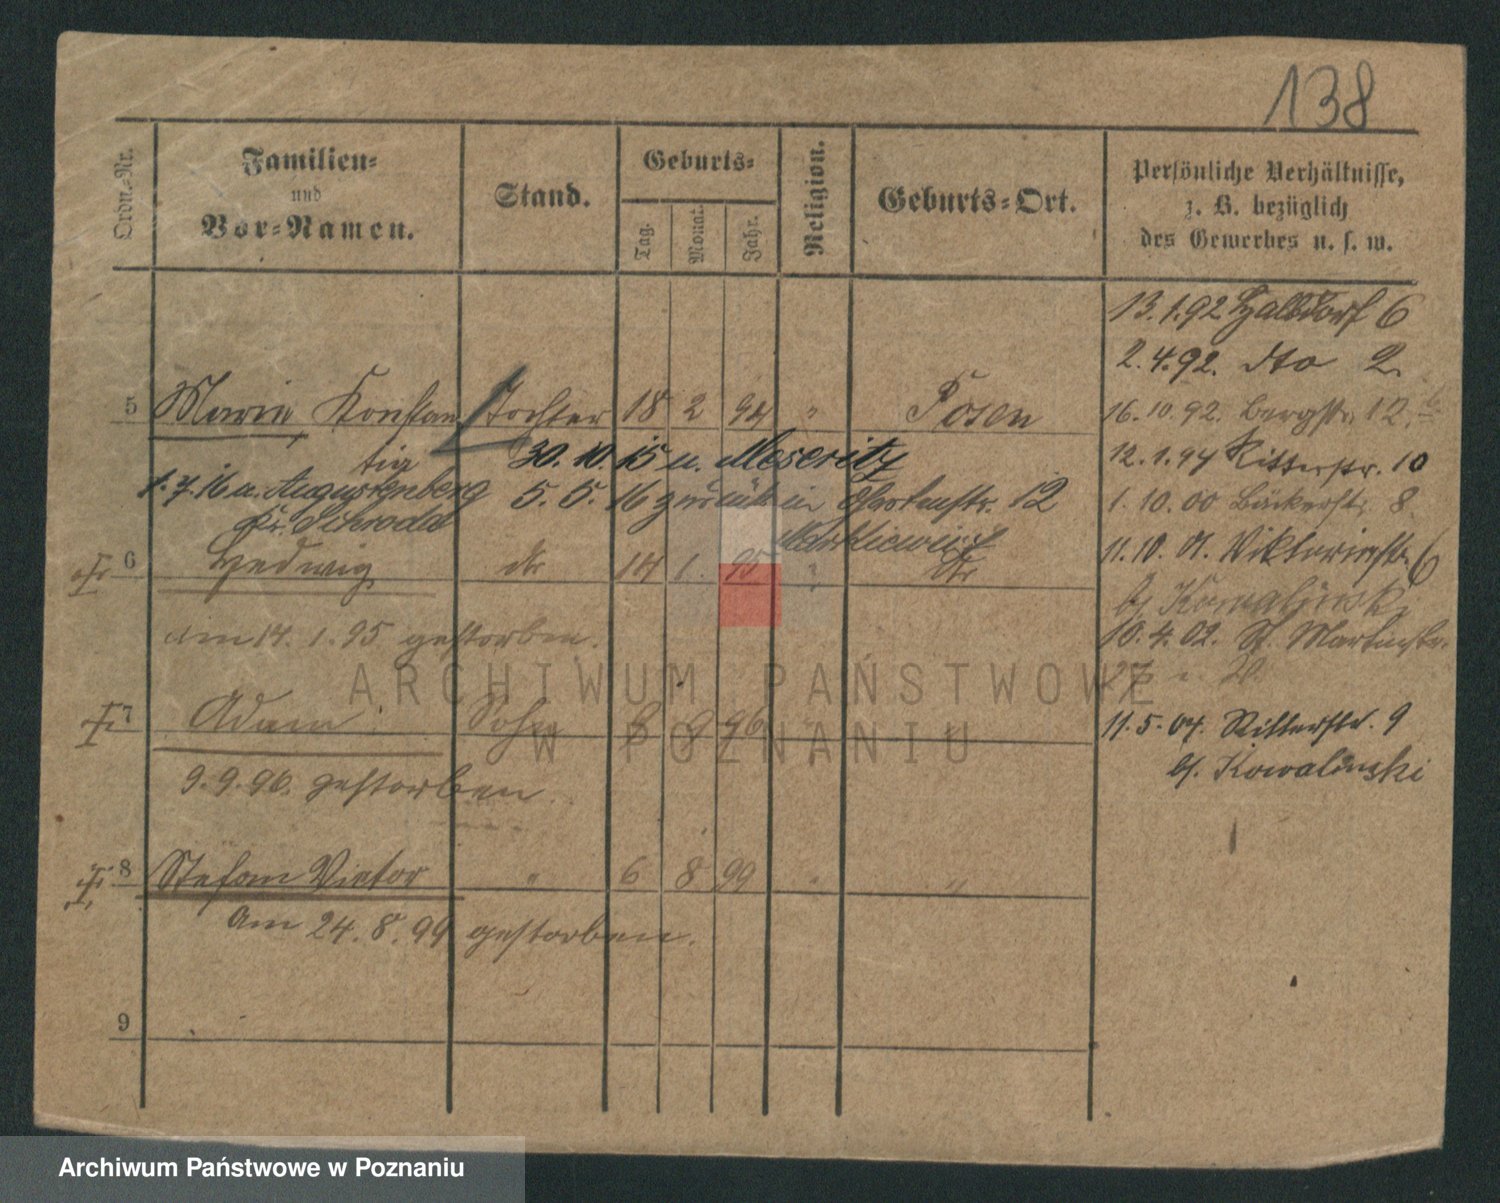 138
Ordn.-Nr.
Familien-
und
Vor-Namen.
Stand.
Geburts-
Tag.
Monat.
Jahr.
Religion.
Geburts-Ort.
Persönliche Verhältnisse,
z. B. bezüglich
des Gewerbes u. s. w.
13.1.92 Halbdorf 6
2.4.92. dto 2
5 Maria Konstan Tochter 18 2 94 " Posen
tia
16.10.92. Bergstr. 12
30.10.15 u. Meseritz
12.1.94 Ritterstr. 10
1.7.16 u. Augustenberg 5.5.16 zurück in Gartenstr. 12
Kr. Schroda
1.10.00 Bäckerstr. 8
Markiewicz
11.10.01. Viktoriastr. 6
6 Hedwig dto 14 1. 95 " dto
b/ Kowalinski
am 14.1.95 gestorben.
10.4.02. St. Martinstr.
27
7 Adam Sohn 8 9 96 "
11.5.07. Ritterstr. 9
b/. Kowalinski
9.9.96. gestorben.
8 Stefan Victor " 6 8 99 " "
am 24.8.99 gestorben.
9
ARCHIWUM PAŃSTWOWE
W POZNANIU
Archiwum Państwowe w Poznaniu